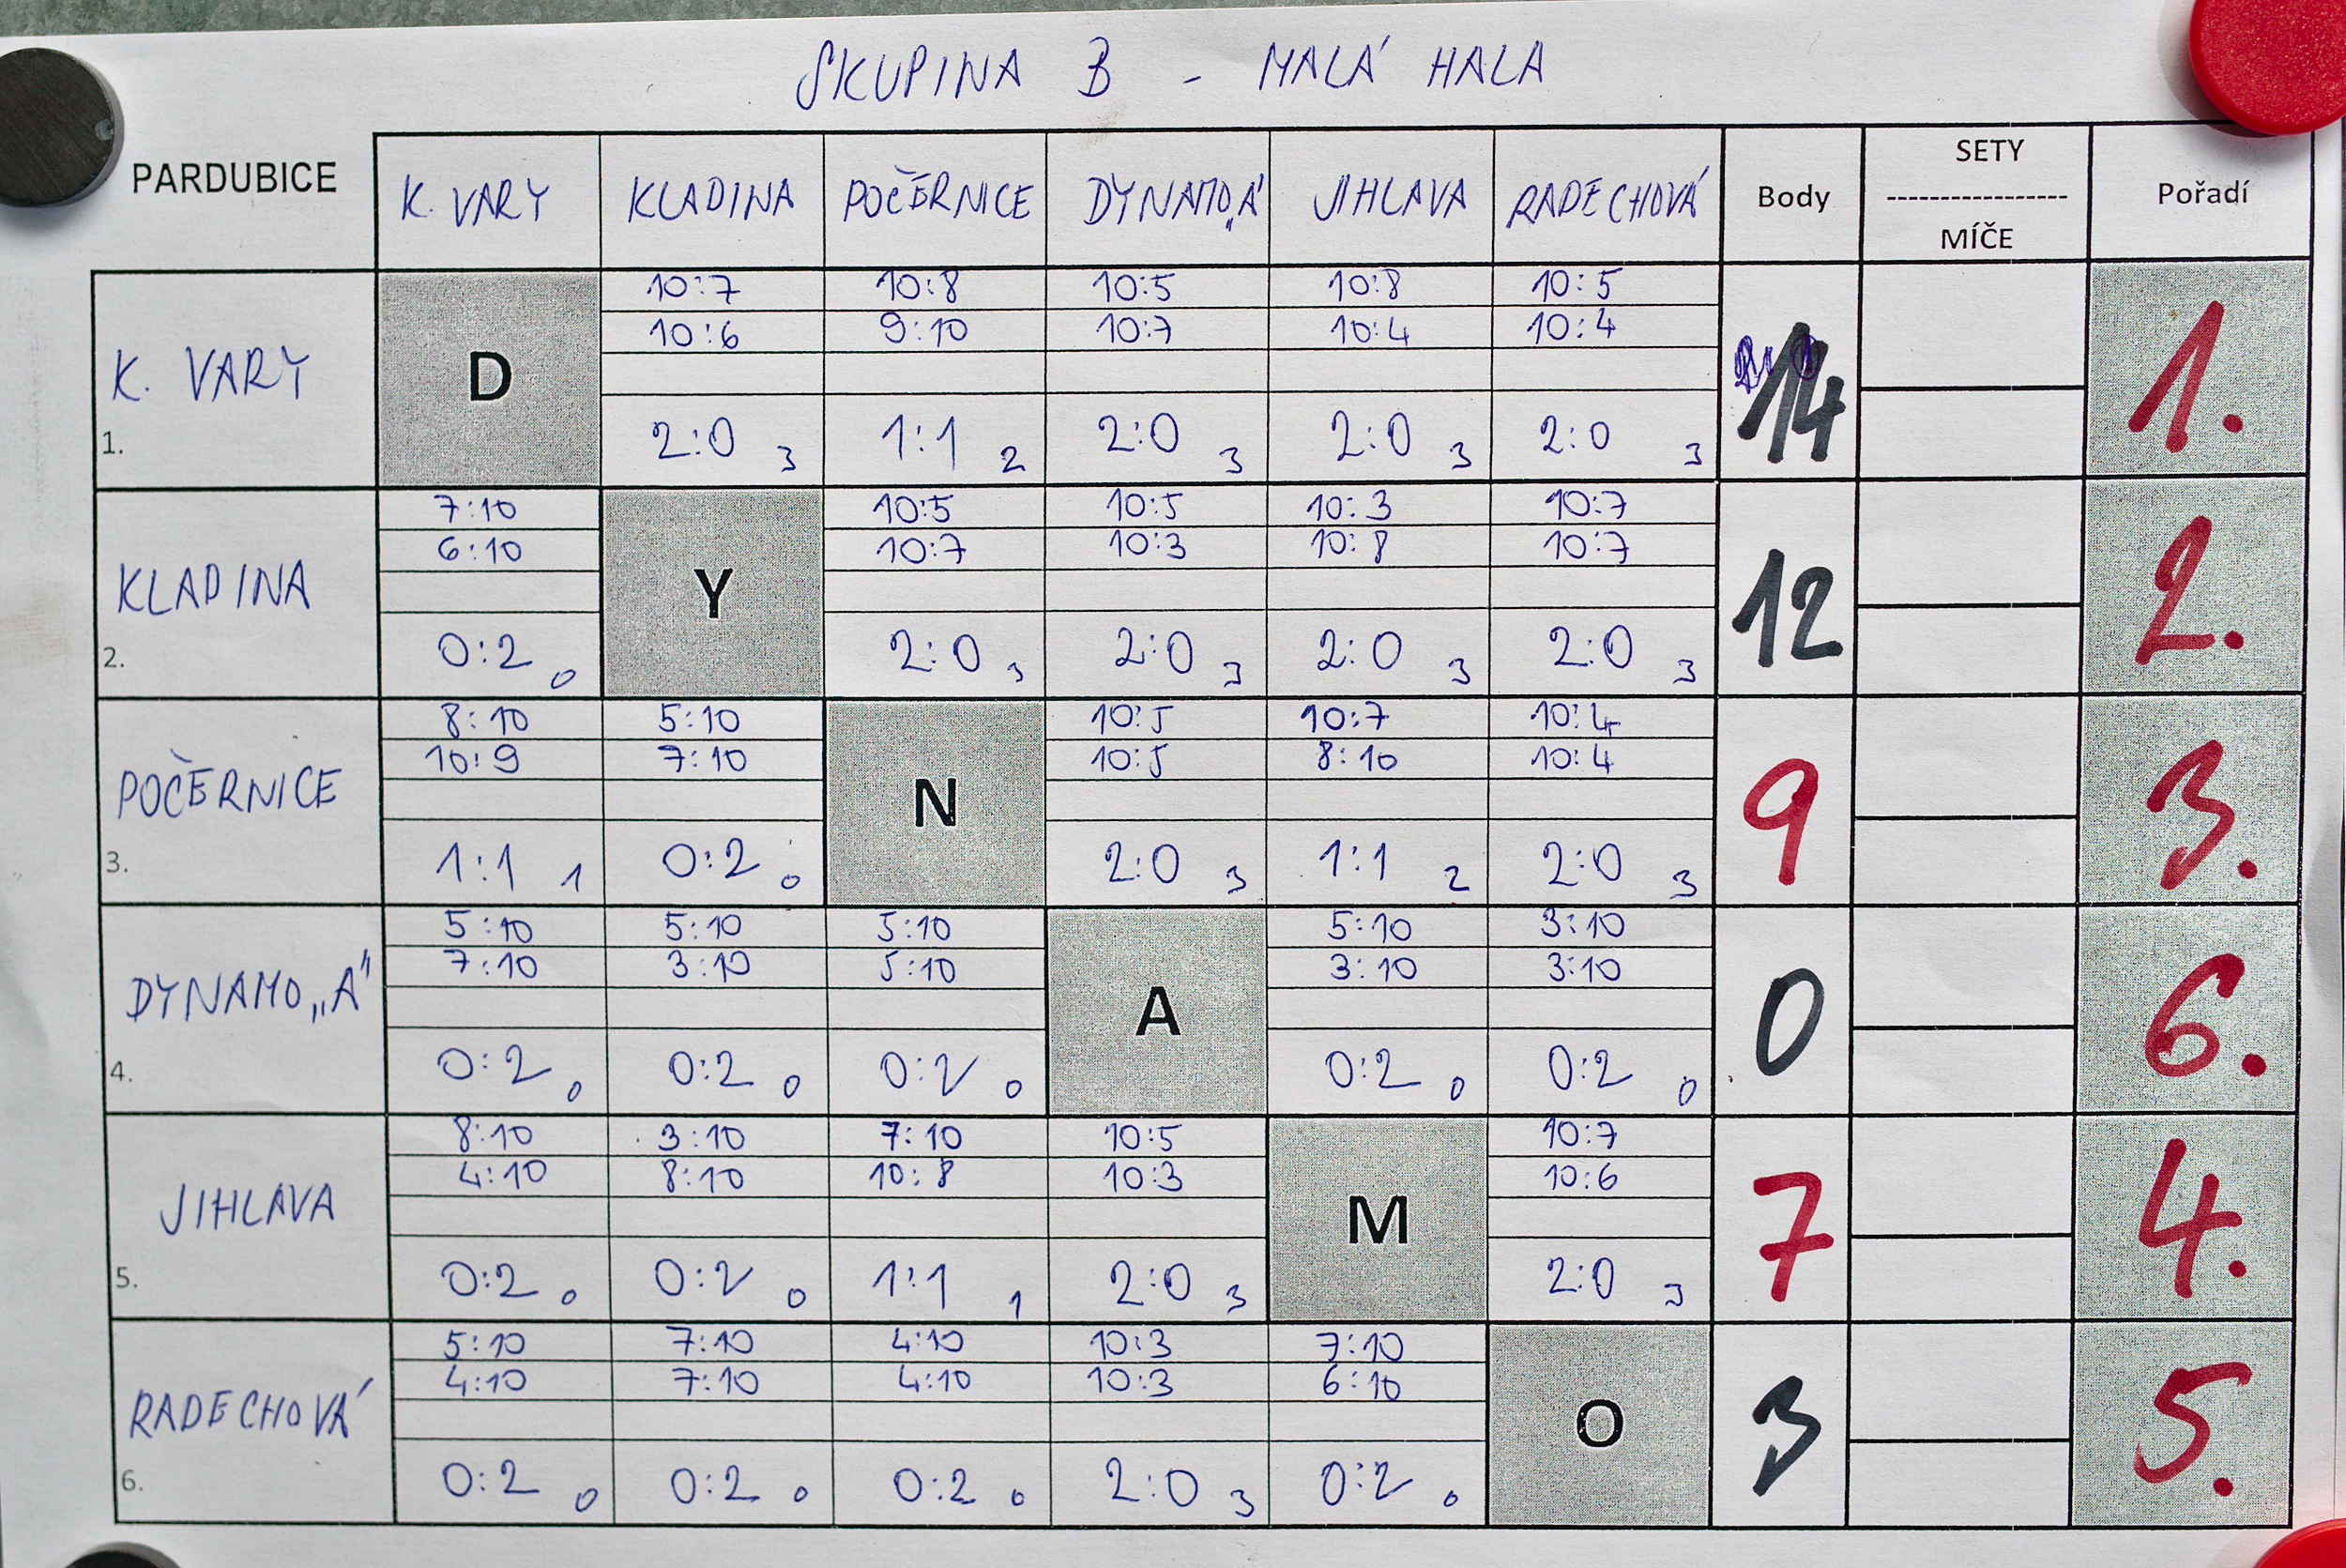 SKUPINA B - MALÁ HALA
PARDUBICE K. VARY KLADINA POČERNICE DYNAMO„A" JIHLAVA RADECHOVÁ Body SETY Pořadí
------------------
MÍČE
10:7 10:8 10:5 10:8 10:5
10:6 9:10 10:7 10:4 10:4
K. VARY D 14 1.
1. 2:0 3 1:1 2 2:0 3 2:0 3 2:0 3
7:10 10:5 10:5 10:3 10:7
6:10 10:7 10:3 10:8 10:7
KLADINA Y 12 2.
2. 0:2 0 2:0 3 2:0 3 2:0 3 2:0 3
8:10 5:10 10:5 10:7 10:4
10:9 7:10 10:5 8:10 10:4
POČERNICE N 9 3.
3. 1:1 1 0:2 0 2:0 3 1:1 2 2:0 3
5:10 5:10 5:10 5:10 3:10
7:10 3:10 5:10 3:10 3:10
DYNAMO„A" A 0 6.
4. 0:2 0 0:2 0 0:2 0 0:2 0 0:2 0
8:10 3:10 7:10 10:5 10:7
4:10 8:10 10:8 10:3 10:6
JIHLAVA M 7 4.
5. 0:2 0 0:2 0 1:1 1 2:0 3 2:0 3
5:10 7:10 4:10 10:3 7:10
4:10 7:10 4:10 10:3 6:10
RADECHOVÁ O 3 5.
6. 0:2 0 0:2 0 0:2 0 2:0 3 0:2 0